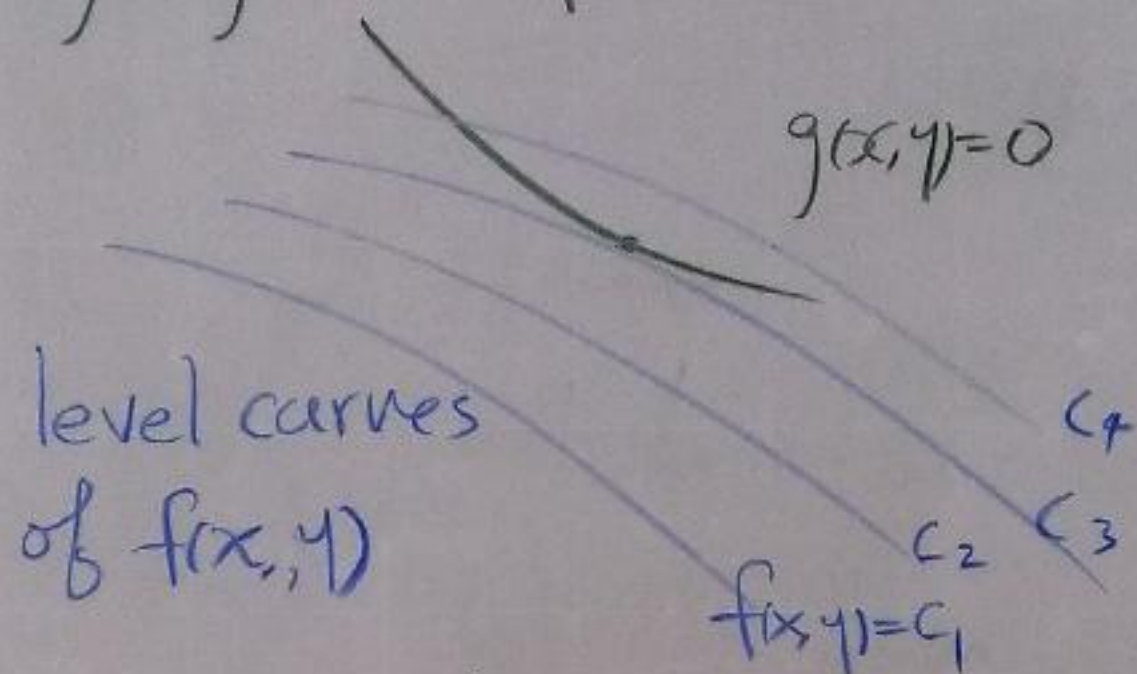 g(x,y)=0
level curves
of f(x,,y)
C4
C3
C2
f(x,y)=C1